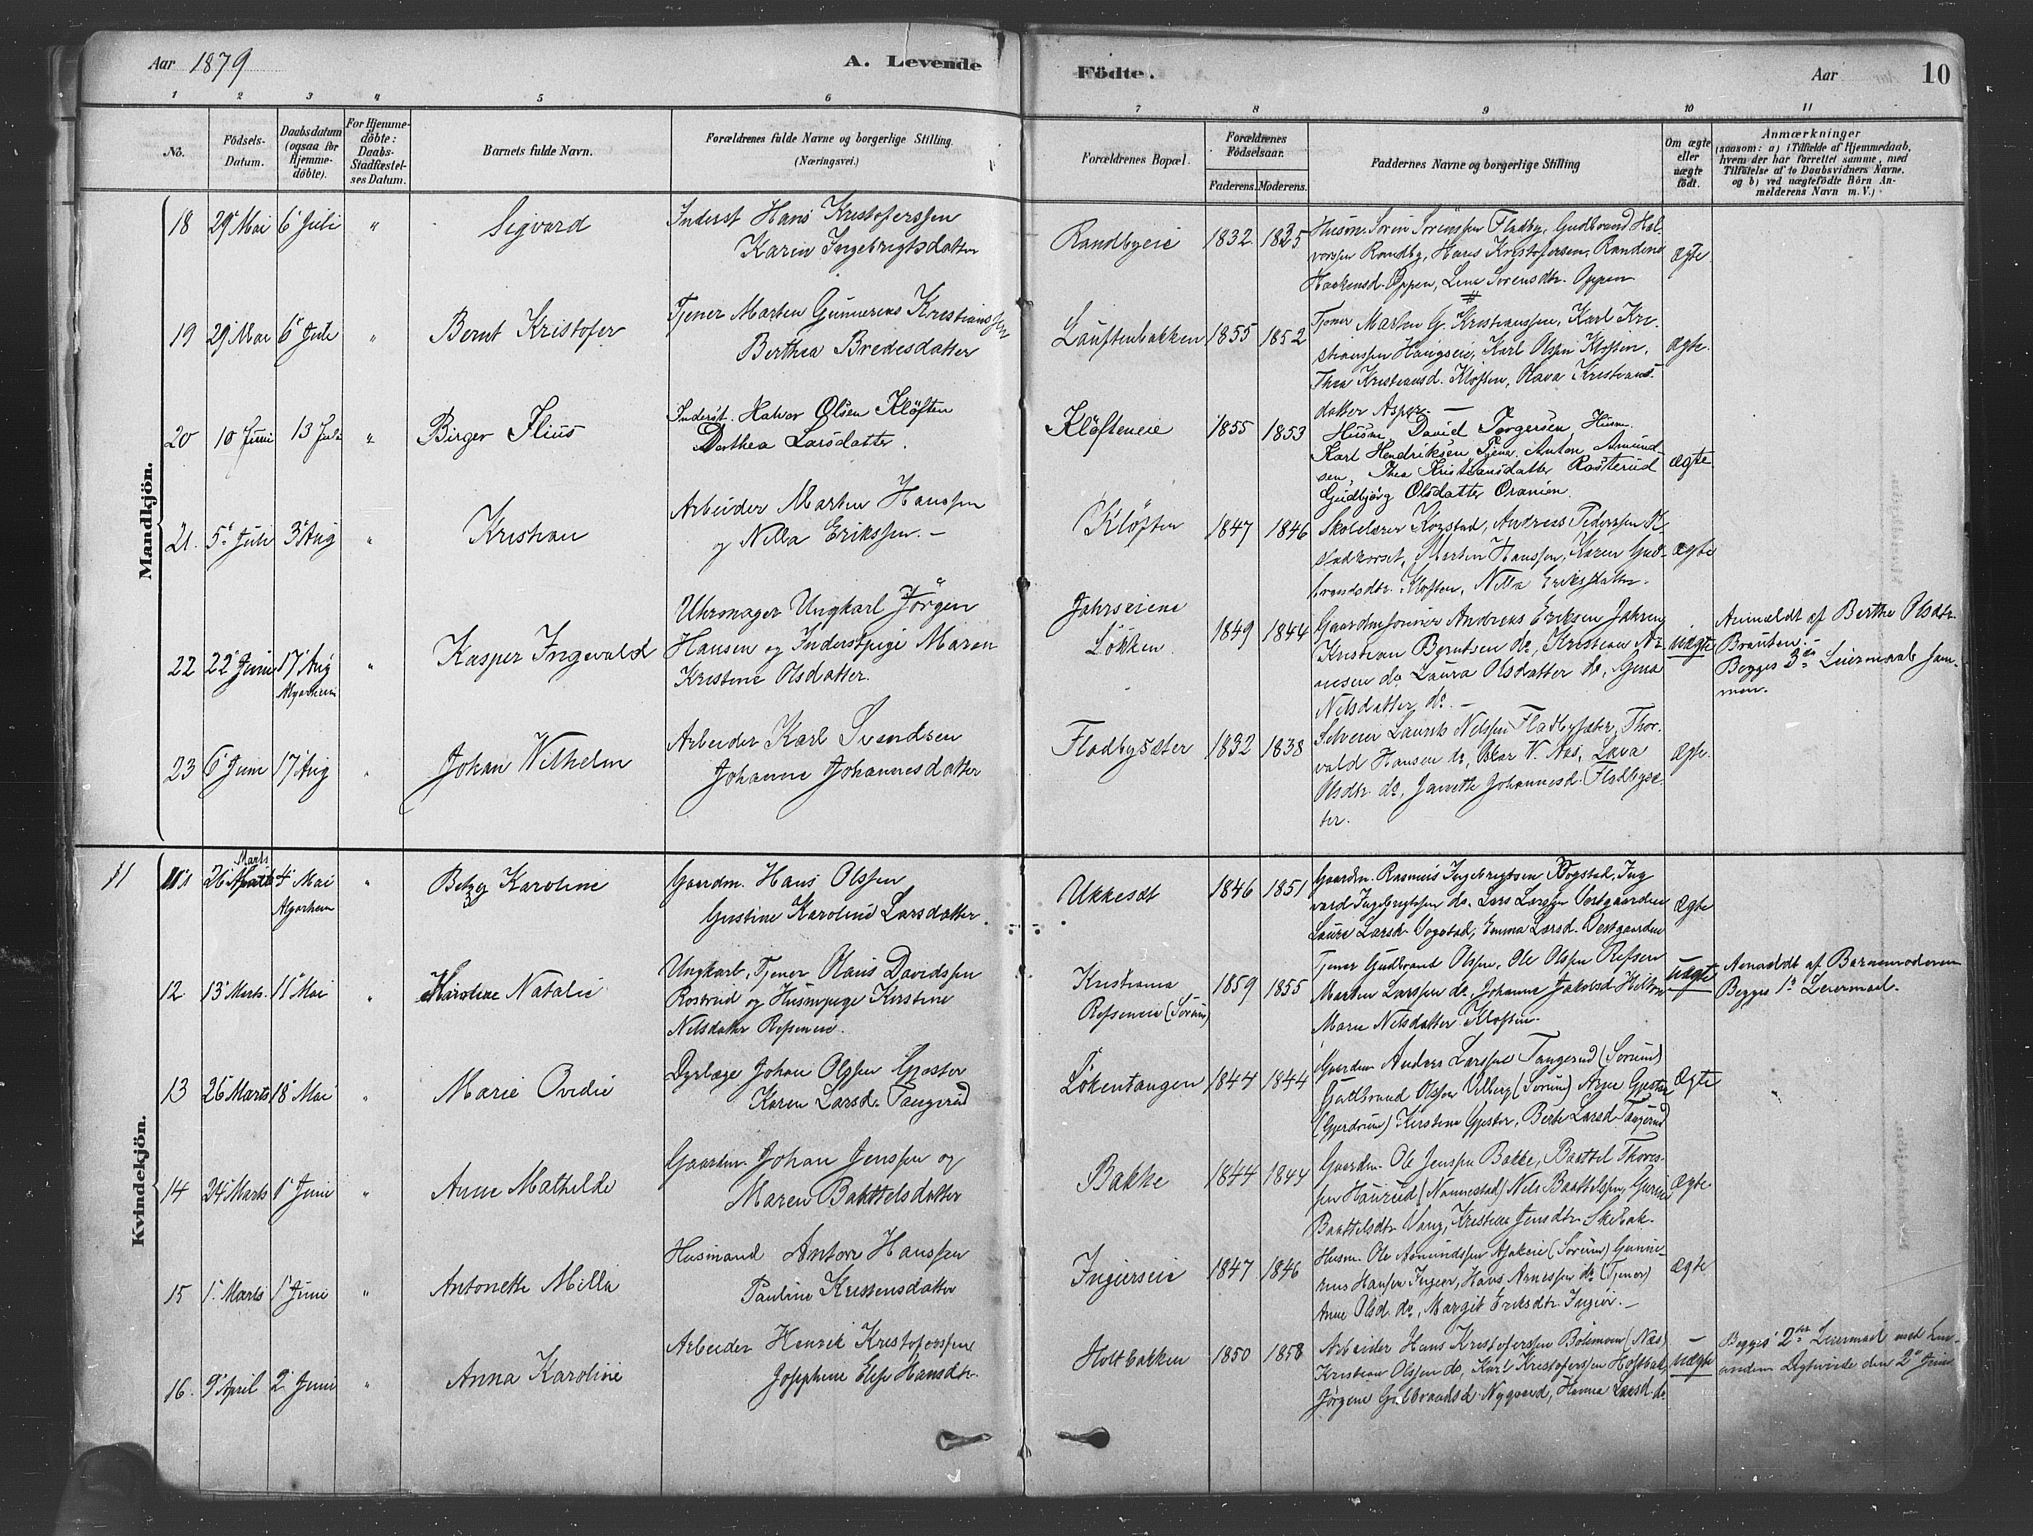 Aar 1879
A. Levende Födte.
Aar
10
1 2 3 4 5 6 7 8 9 10 11
No.
Födsels-Datum.
Daabsdatum (ogsaa for Hjemme-döbte).
For Hjemme-döbte: Daabs-Stadfæstel-ses Datum.
Barnets fulde Navn.
Forældrenes fulde Navne og borgerlige Stilling. (Næringsvei.)
Forældrenes Bopæl.
Forældrenes Födselsaar.
Faderens. Moderens.
Faddernes Navne og borgerlige Stilling
Om ægte eller uægte födt.
Anmærkninger
(saasom: a) i Tilfælde af Hjemmedaab, hvem der har forrettet samme, med Tilföielse af to Daabsvidners Navne. og b) ved uægtefödte Börn Anmelderens Navn m. V.)
Mandkjön.
18 29 Mai 6 Juli " Sigvard
Inderst Hans Kristoferssen
Karen Ingebrigtsdatter
Randbyeie 1832 1825
Husm. Søren Sørenssen Fladby, Gudbrand Hal-
vorssen Randby, Hans Kristofersen, Randine
Haakensd. Oppen, Line Sørensdtr. Oppen
Ægte
19 29 Mai 6 Juli " Bernt Kristofer
Tjener Marten Gunnerius Kristianssen
Berthea Bredesdatter
Lauftenbakken 1855 1852
Tjener Marten G. Kristianssen, Karl Kri-
stianssen Haugseie, Karl Olsen Kloften,
Thea Kristiansd. Kloften, Olava Kristians-
datter Asper. —
Ægte.
20 10 Juni 13 Juli " Birger Ilius
Inderst. Halvor Olsen Kløften
Dorthea Larsdatter.
Kløfteneie 1855 1853
Husm. David Torgersen, Husm.
Karl Hendriksen, Tjener Anton Amund-
sen, Thea Kristiansdatter Rosterud
Gudbjørg Olsdatter Oranien.
Ægte
21. 5 Juli 3 Aug " Kristian
Arbeider Marten Hanssen
og Nilla Erikssen. —
Kløften 1847 1846
Skolelærer Kogstad, Andreas Pederssen
Marten Hanssen, Karen Gud-
brandsdtr. Kloften, Nilla Eriksdatter.
Ægte
22 22 Juni 17 Aug Algarheim " Kasper Ingevald
Uhrmager Ungkarl Jørgen
Hansen og Inderstpige Maren
Kristine Olsdatter.
Løkken. 1849 1844
Andreas Eriksen
Kristian Berntsen do, Kristian
Laura Olsdatter do, Gina
Nilsdatter do. —
uægte
Anmeldt af Berthe Olsdtr
Brauten. —
Begges 3die Leiermaal sam-
men.
23 6 Juni 17 Aug " Johan Vilhelm
Arbeider Karl Svendsen
Johanne Johannesdatter
Fladbysæter 1832 1838
Selveier Laurits Nilssen Fladbysæter, Thor-
vald Hansen do, Oskar V. Næs, Lava
Olsdtr. do, Johannesd. Fladbysæ-
ter.
Ægte.
Kvindekjön.
11 11 26 Marts 4 Mai Algarheim " Betzy Karoline
Gaardm. Hans Olssen
Gustine Karoline Larsdatter.
Ukkesdt 1846 1851
Gaardm. Rasmus Ingebrigtsen Kogstad, Ing
vard Ingebrigtssen do. Lars Larssen Vestgaarden
Laura Larsd. Vogstad, Emma Larsd. Vestgaarden
Ægte
12 13 Marts. 11 Mai " Karoline Natalie
Ungkarl, Tjener Olaus Davidssen
Rostrud og Husmpige Kirstine
Nilsdatter Refseneie.
Kristiania
Refseneie (Sørum) 1859 1855
Tjener Gudbrand Olssen, Ole Olssen Refsen
Marten Larssen do, Johanne Jakobsd Hilton
Marie Nilsdatter Kloften.
uægte
Anmeldt af Barnemoderen
Begges 1ste Leiermaal.
13 26 Marts 18 Mai " Marie Ovidie
Dyrlæge Johan Olssen Gjøster
Karen Larsd. Tangerud
Løkentangen 1844 1844
Gaardm Anders Larssen Tangerud (Sørum)
Guldbrand Olssen Ulberg (Sørum) Arne Gjøster
(Gjerdrum) Kirstine Gjøster, Berte Larsd Tangerud
Ægte
14 24 Marts 1 Juni " Anne Mathilde
Gaardm. Johan Jenssen og
Maren Baattelsdatter
Bakke 1844 1844
Gaardm. Ole Jenssen Bakke, Baattel Thores-
sen Haurud (Nannestad) Nils Baattelssen,
Baattelsdtr. Vang, Kristine Jensdtr. Skibak-
Ægte
15 1 Marts 1 Juni " Antonette Milla
Husmand Anton Hanssen
Pauline Kristensdatter
Ingierseie 1847 1846
Husm. Ole Asmundssen (Sørum) Gunne-
rius Hansen Ingier, Hans Arnessen do (Tjener)
Anne Olsd. do, Margit Eriksdtr. Ingier. —
Ægte
16. 9 April 2 Juni " Anna Karoline
Arbeider Henrik Kristoferssen
Josephine Elise Hansdtr.
Holtbakken 1850 1858
Arbeider Hans Kristoferssen (Næs)
Kristian Olssen do, Karl Kristoferssen
Jørgene Gulbrandsd. Nygaard, Hanna Larsd. do
uægte
Begges 2det Leiermaal med hin-
anden. den 2den Juni